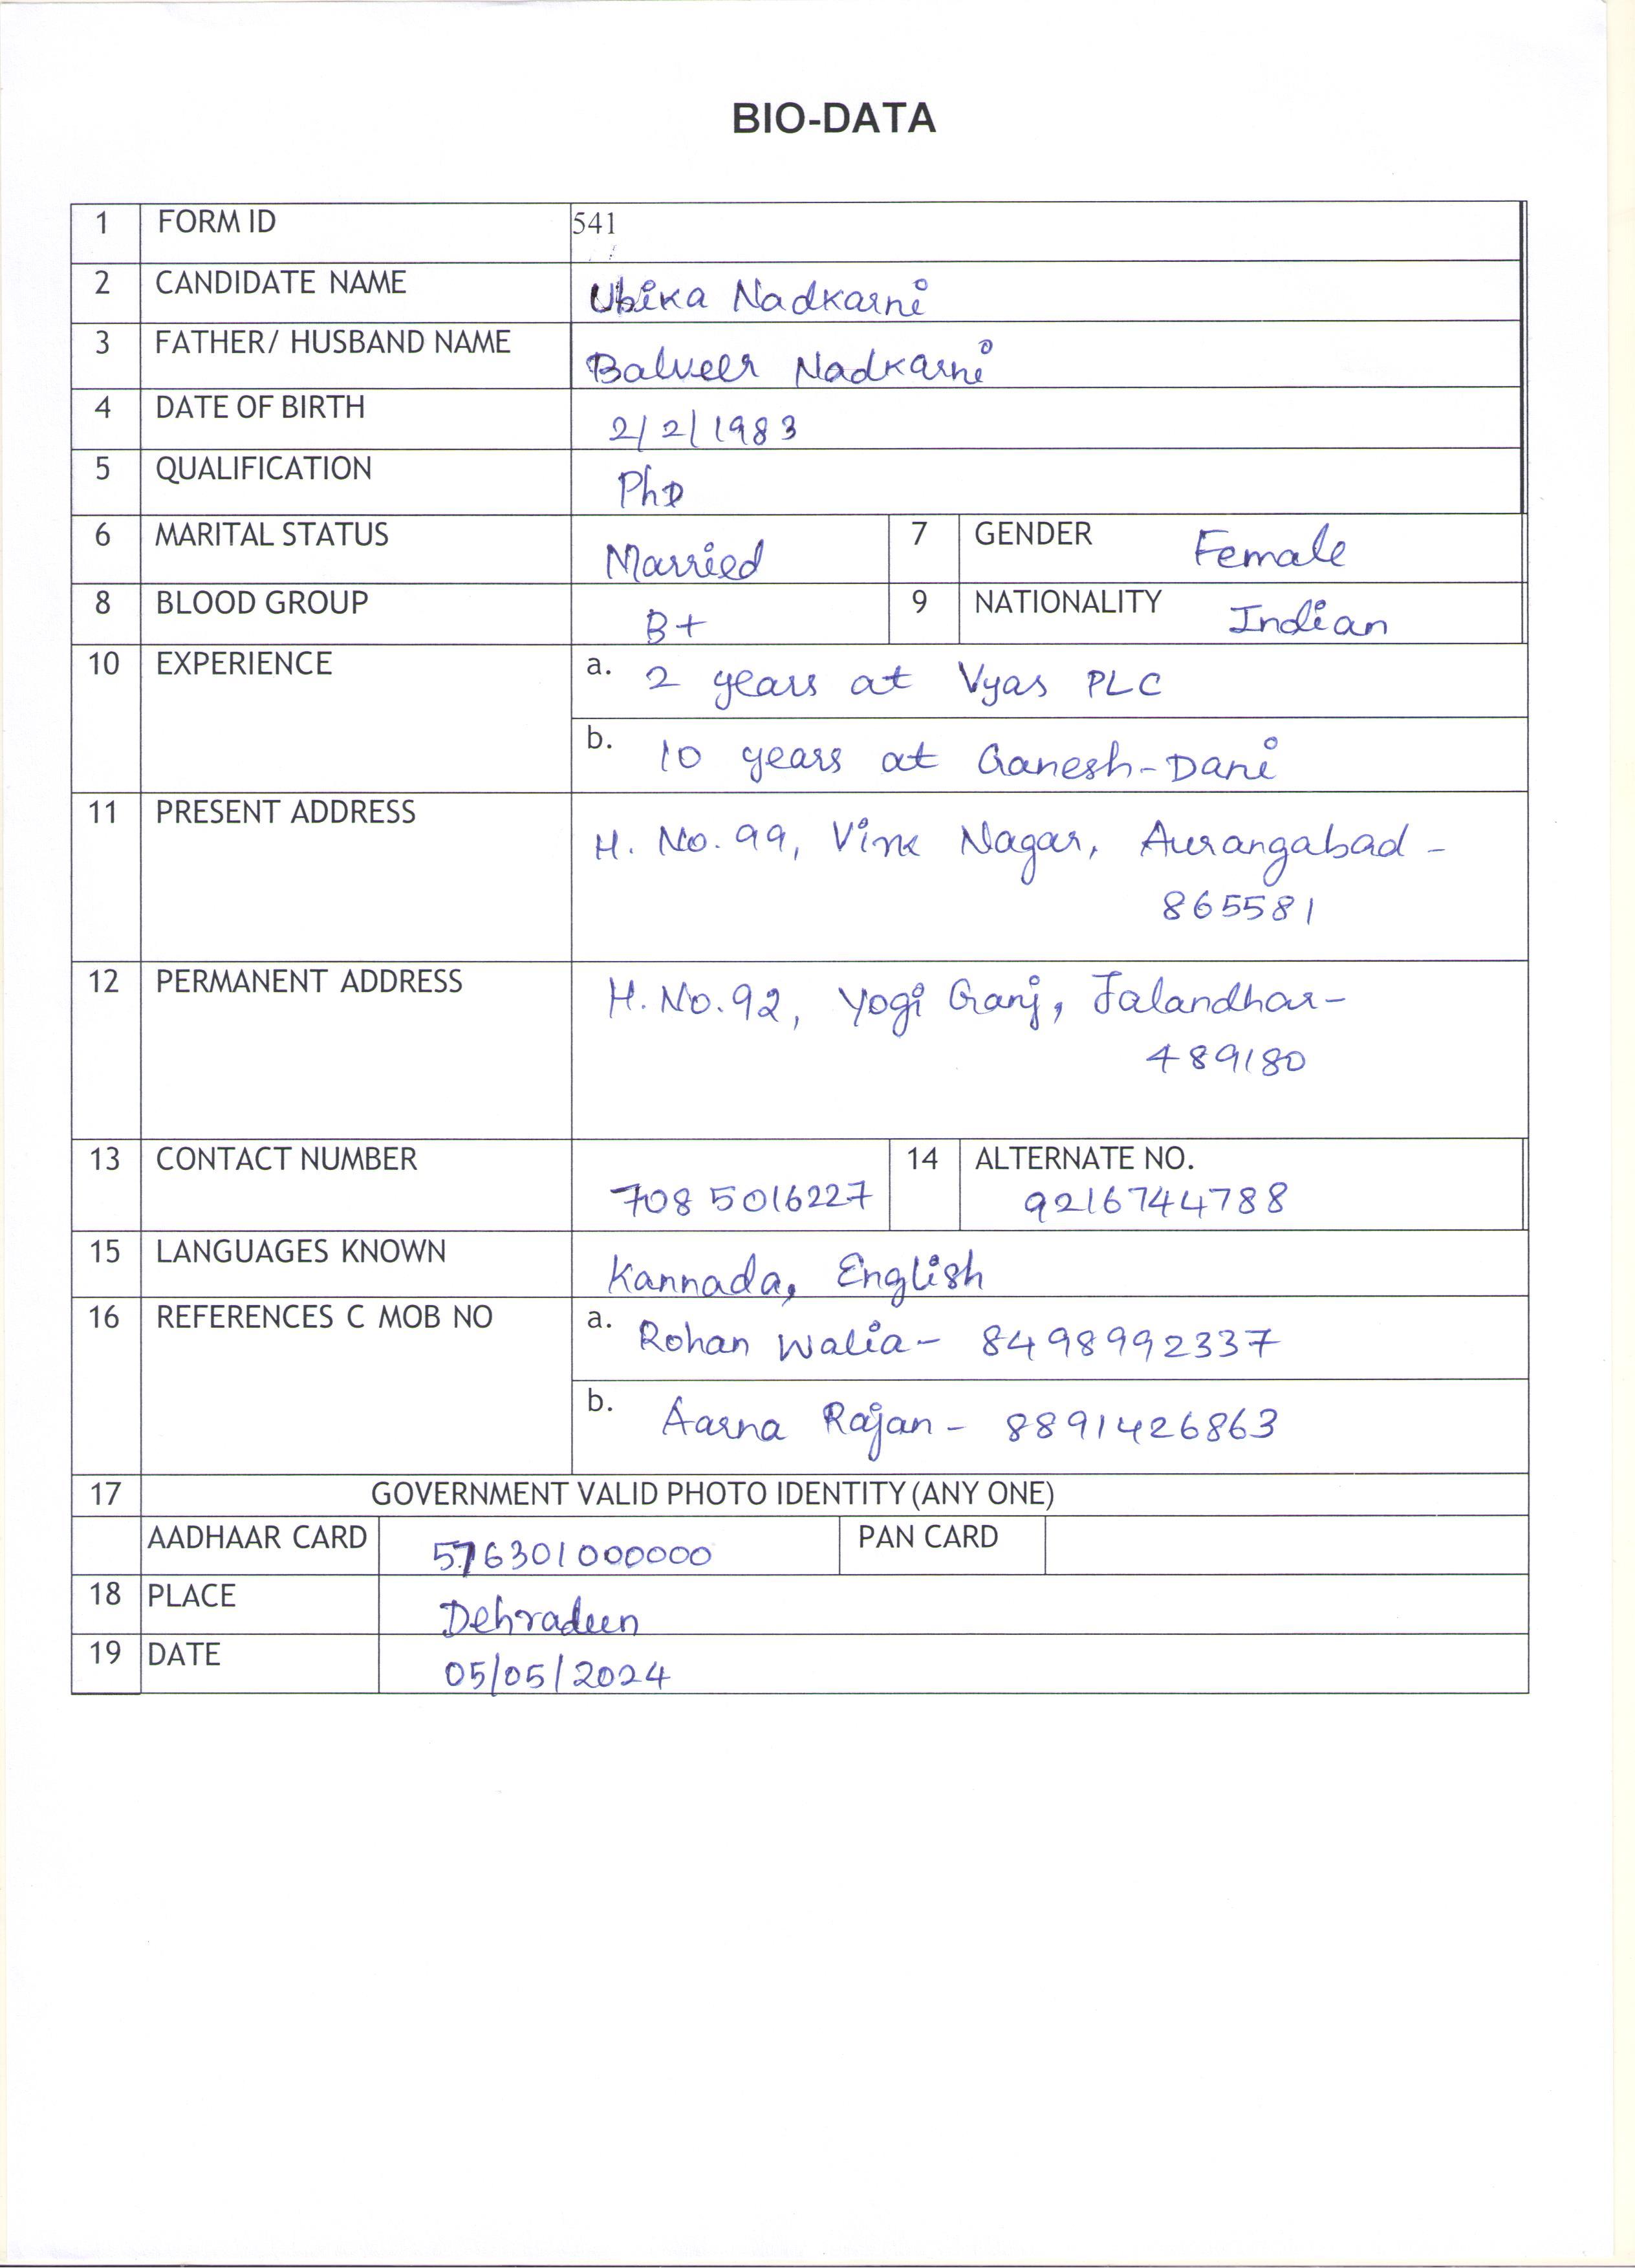 BIO-DATA
1 FORM ID 541
2 CANDIDATE NAME Ubika Nadkarni
3 FATHER/ HUSBAND NAME Balveer Nadkarni
4 DATE OF BIRTH 2/2/1983
5 QUALIFICATION PhD
6 MARITAL STATUS Married 7 GENDER Female
8 BLOOD GROUP B+ 9 NATIONALITY Indian
10 EXPERIENCE a. 2 years at Vyas PLC
b. 10 years at Ganesh-Dani
11 PRESENT ADDRESS H. No. 99, Nagar, Aurangabad -
865581
12 PERMANENT ADDRESS H. No. 92, Yogi Ganj, Jalandhar-
489180
13 CONTACT NUMBER 7085016227 14 ALTERNATE NO. 9216744788
15 LANGUAGES KNOWN Kannada, English
16 REFERENCES C MOB NO a. Rohan Walia- 8498992337
b. Aarna Rajan- 8891426863
17 GOVERNMENT VALID PHOTO IDENTITY(ANY ONE)
AADHAAR CARD 576301000000 PAN CARD
18 PLACE Dehradun
19 DATE 05/05/2024